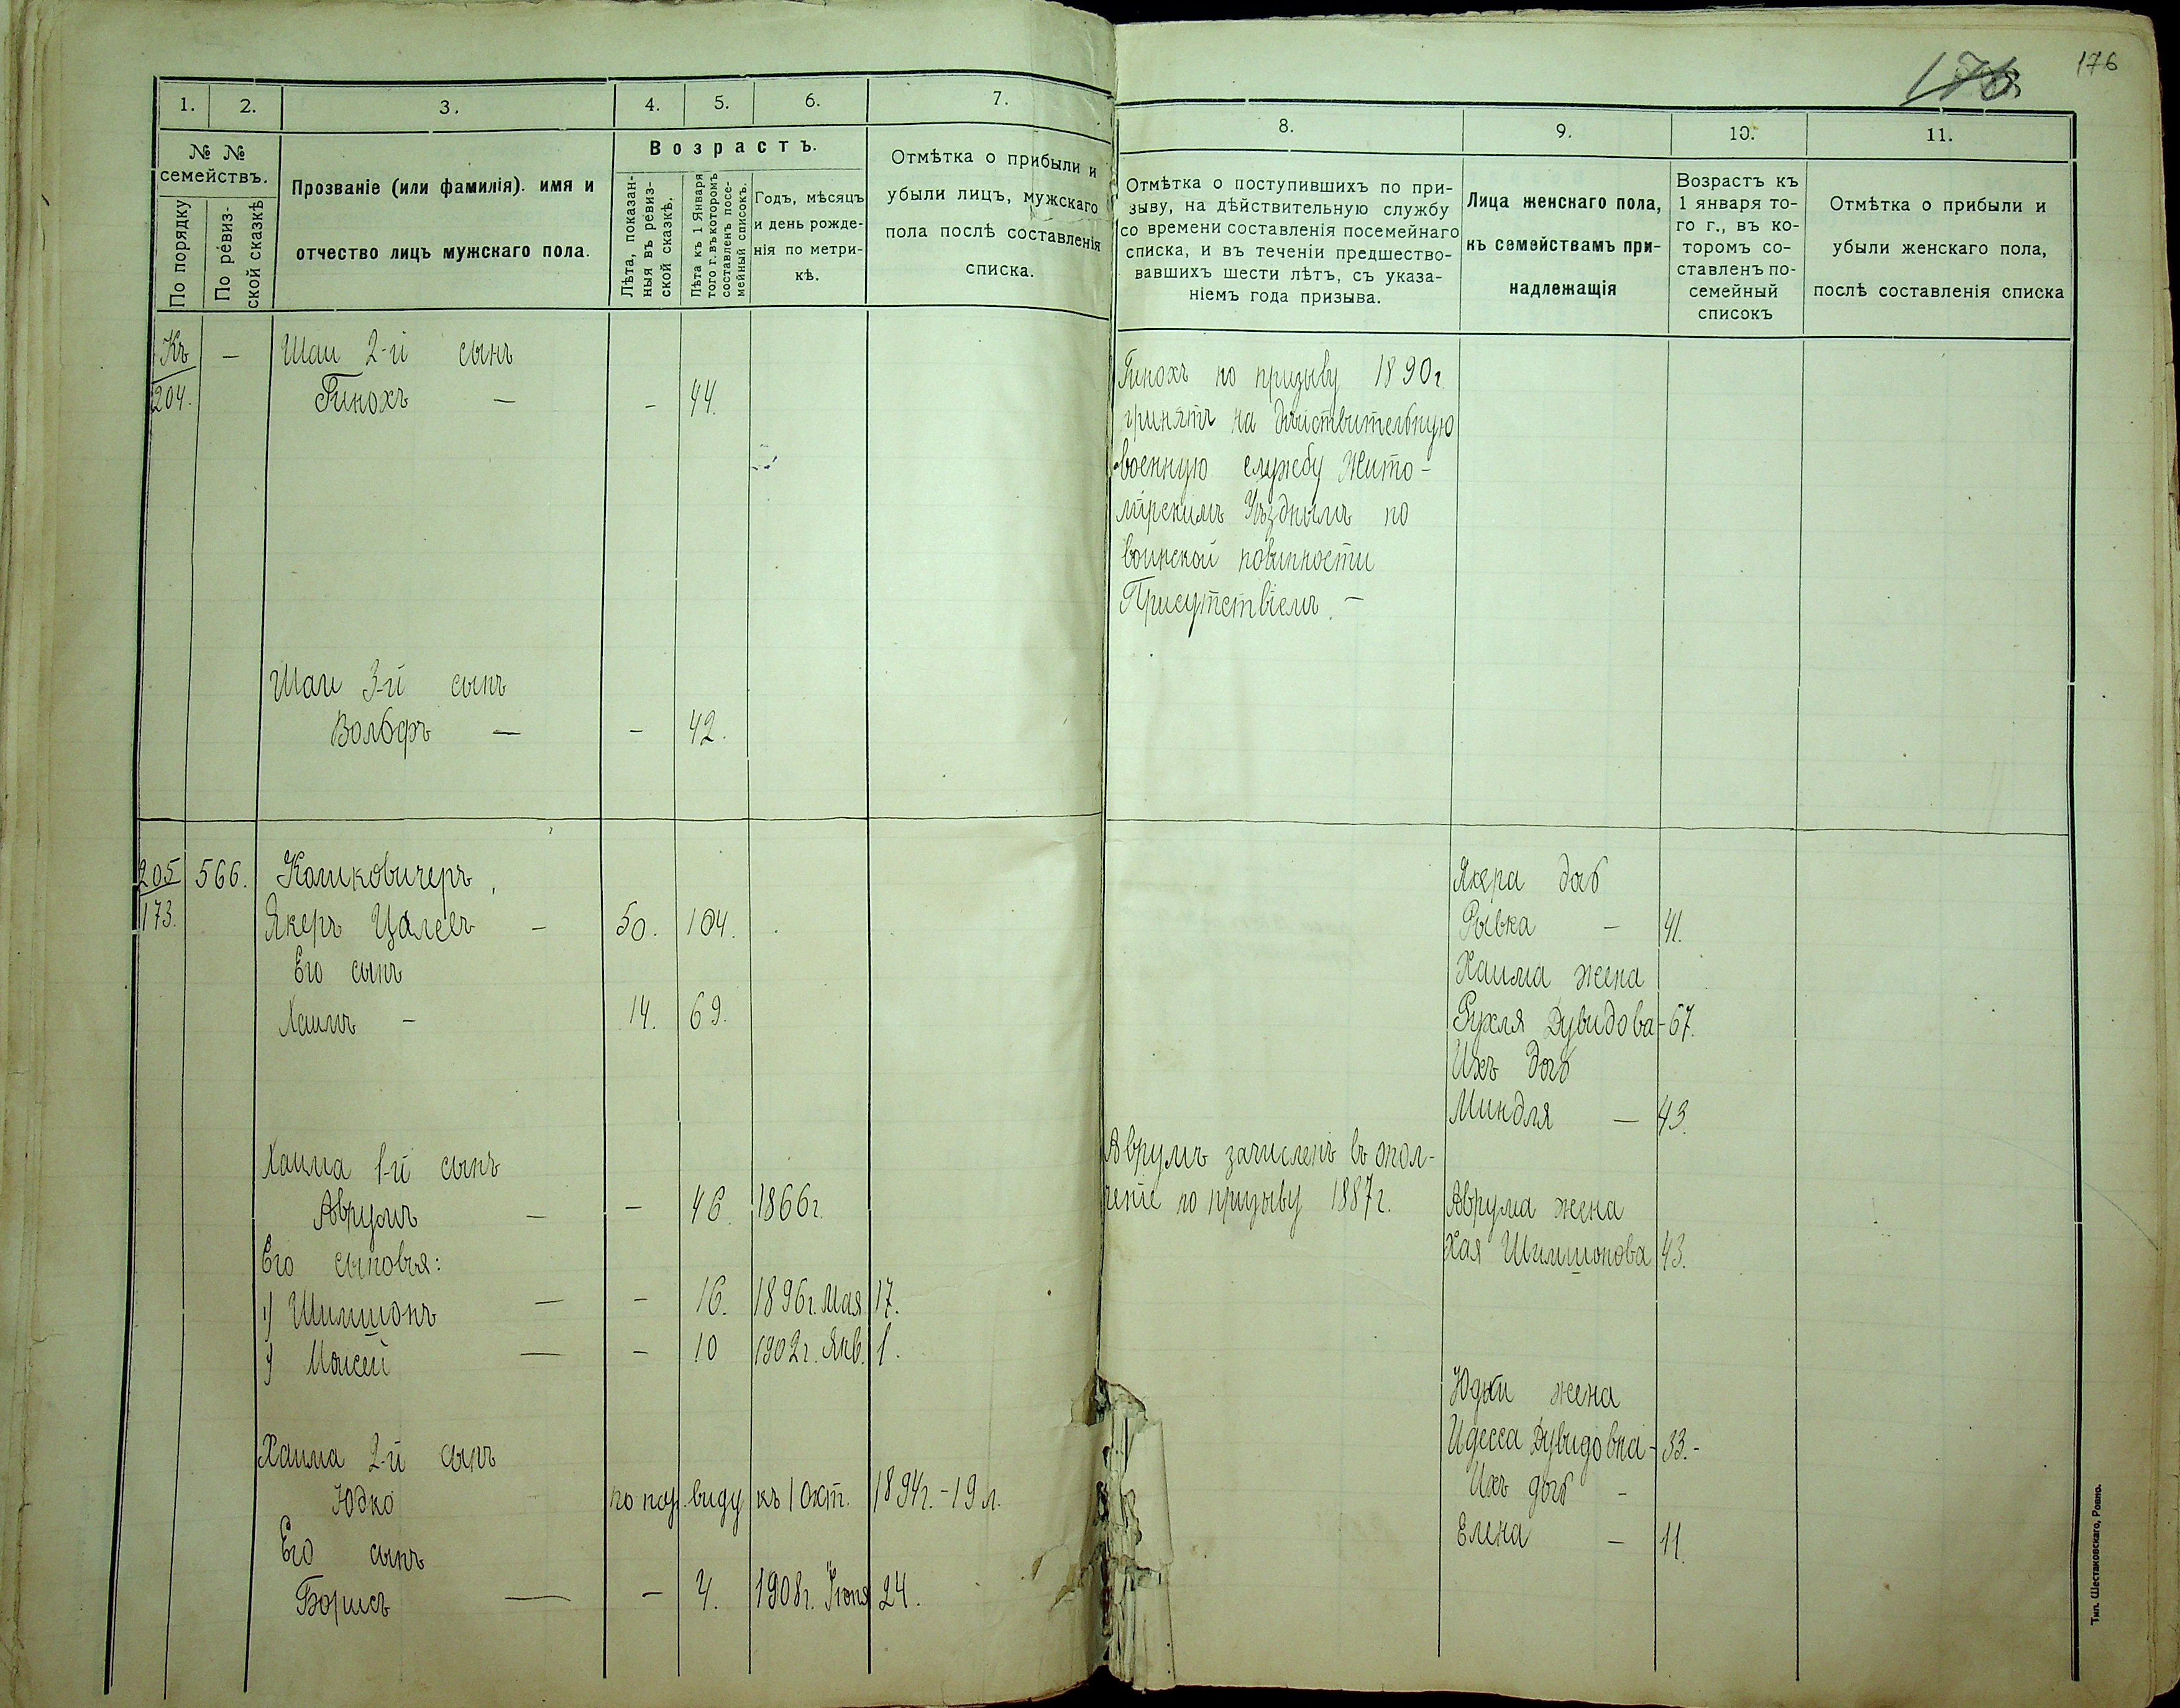 176
176
1.
2.
3.
4.
5.
6.
7.
8.
9.
10.
11.
№ №
семействъ.
По порядку
По ревиз-
ской сказкѣ
Прозваніе (или фамилія). имя и
отчество лицъ мужскаго пола.
Возрастъ.
Лѣта, показан-
ныя въ ревиз-
ской сказкѣ,
Лѣта къ 1 Января
того г. въ которомъ
составленъ посе-
мейный списокъ.
Годъ, мѣсяцъ
и день рожде-
нія по метри-
кѣ.
Отмѣтка о прибыли и
убыли лицъ, мужскаго
пола послѣ составленія
списка.
Отмѣтка о поступившихъ по при-
зыву, на дѣйствительную службу
со времени составленія посемейнаго
списка, и въ теченіи предшество-
вавшихъ шести лѣтъ, съ указа-
ніемъ года призыва.
Лица женскаго пола,
къ семействамъ при-
надлежащія
Возрастъ къ
1 января то-
го г., въ ко-
торомъ со-
ставленъ по-
семейный
списокъ
Отмѣтка о прибыли и
убыли женскаго пола,
послѣ составленія списка
Къ — Шаи 2-й сынъ
204. Гинохъ — - 44.
Шаи 3-й сынъ
Вольфъ — - 42.
205 566. Камковичеръ,
173. Якеръ Цалевъ - 50. 104.
Его сынъ
Хаимъ - 14. 69.
Хаима 1-й сынъ
Аврумъ — - 46. 1866г.
Его сыновья:
1) Шимшонъ — - 16. 1896г. Мая 17.
2) Мойсей — - 10 1902г. Янв. 1.
Хаима 2-й сынъ
Юдко по нар. виду къ 1 Окт. 1894г. - 19 л.
Его сынъ
Борисъ — - 4. 1908г. Іюня 24.
Гинохъ по призыву 1890г.
принятъ на дѣйствительную
военную службу Жито-
мірскимъ Уѣзднымъ по
воинской повинности
Присутствіемъ. -
Аврумъ зачисленъ въ опол-
ченіе по призыву 1887г.
Якера дочь
Рывка - 41.
Хаима жена
Рухля Дувидова - 67.
Ихъ дочь
Миндля — 43.
Аврума жена
Хая Шимшонова 43.
Юдки жена
Идесса Дувидовна - 33. -
Ихъ дочь -
Елена — 11.
Тип. Шестаковскаго, Ровно.